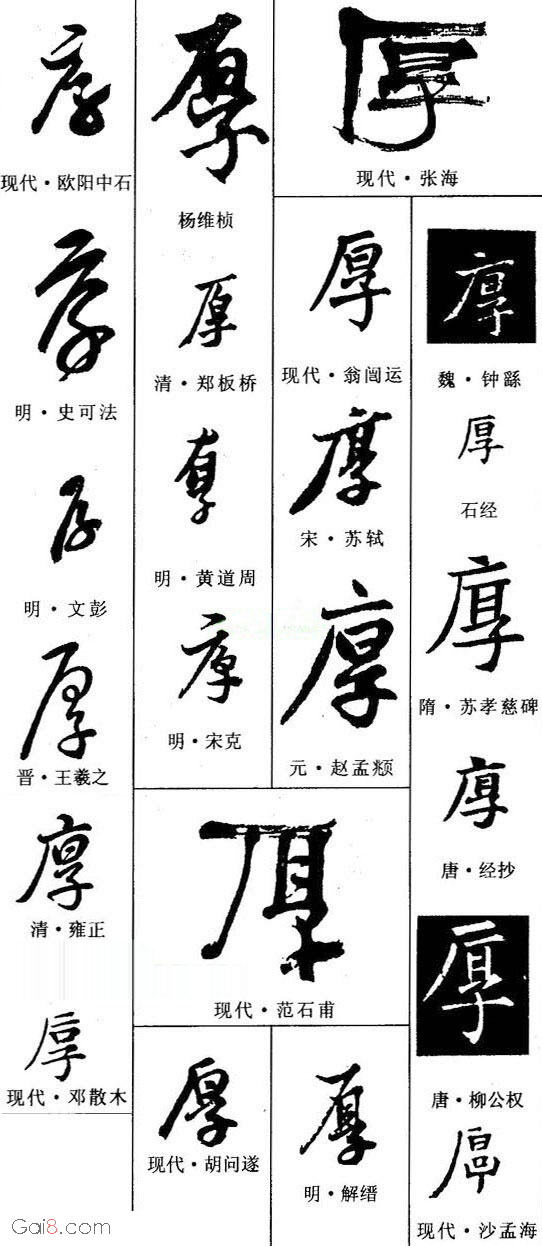 厚
现代·欧阳中石
厚
明·史可法
厚
明·文彭
厚
晋·王羲之
厚
清·雍正
厚
现代·邓散木
厚
杨维桢
厚
清·郑板桥
厚
明·黄道周
厚
明·宋克
厚
现代·张海
厚
现代·翁闿运
厚
宋·苏轼
厚
元·赵孟頫
厚
现代·范石甫
厚
现代·胡问遂
厚
明·解缙
厚
魏·钟繇
厚
石经
厚
隋·苏孝慈碑
厚
唐·经抄
厚
唐·柳公权
厚
现代·沙孟海
Gai8.com